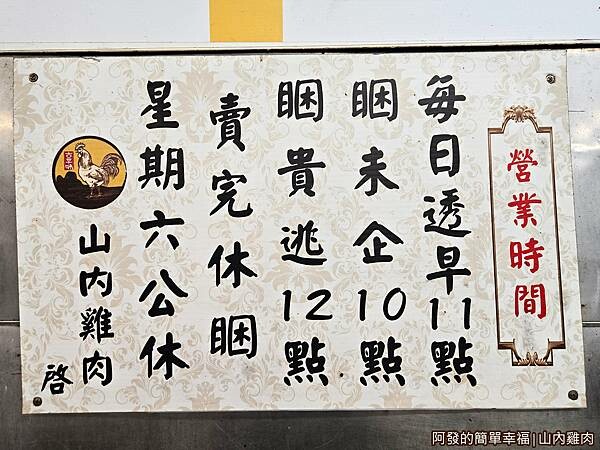 營業時間
每日透早11點
睏未企10點
睏貴逃12點
賣完休睏
星期六公休
山內雞肉
啓
阿發的簡單幸福|山內雞肉